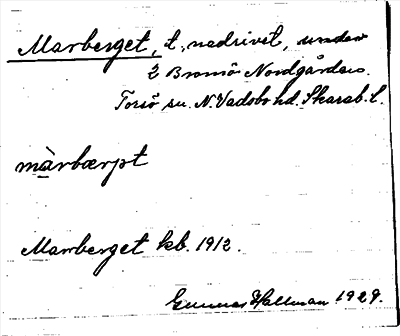 Marberget, t, nedrivet, under
2 Bromö Nordgården.
Torsö sn. N. Vadsbo hd. Skarab. l.
màrbærpt
Marrberget kb. 1912.
Gunnar Hallman 1929.